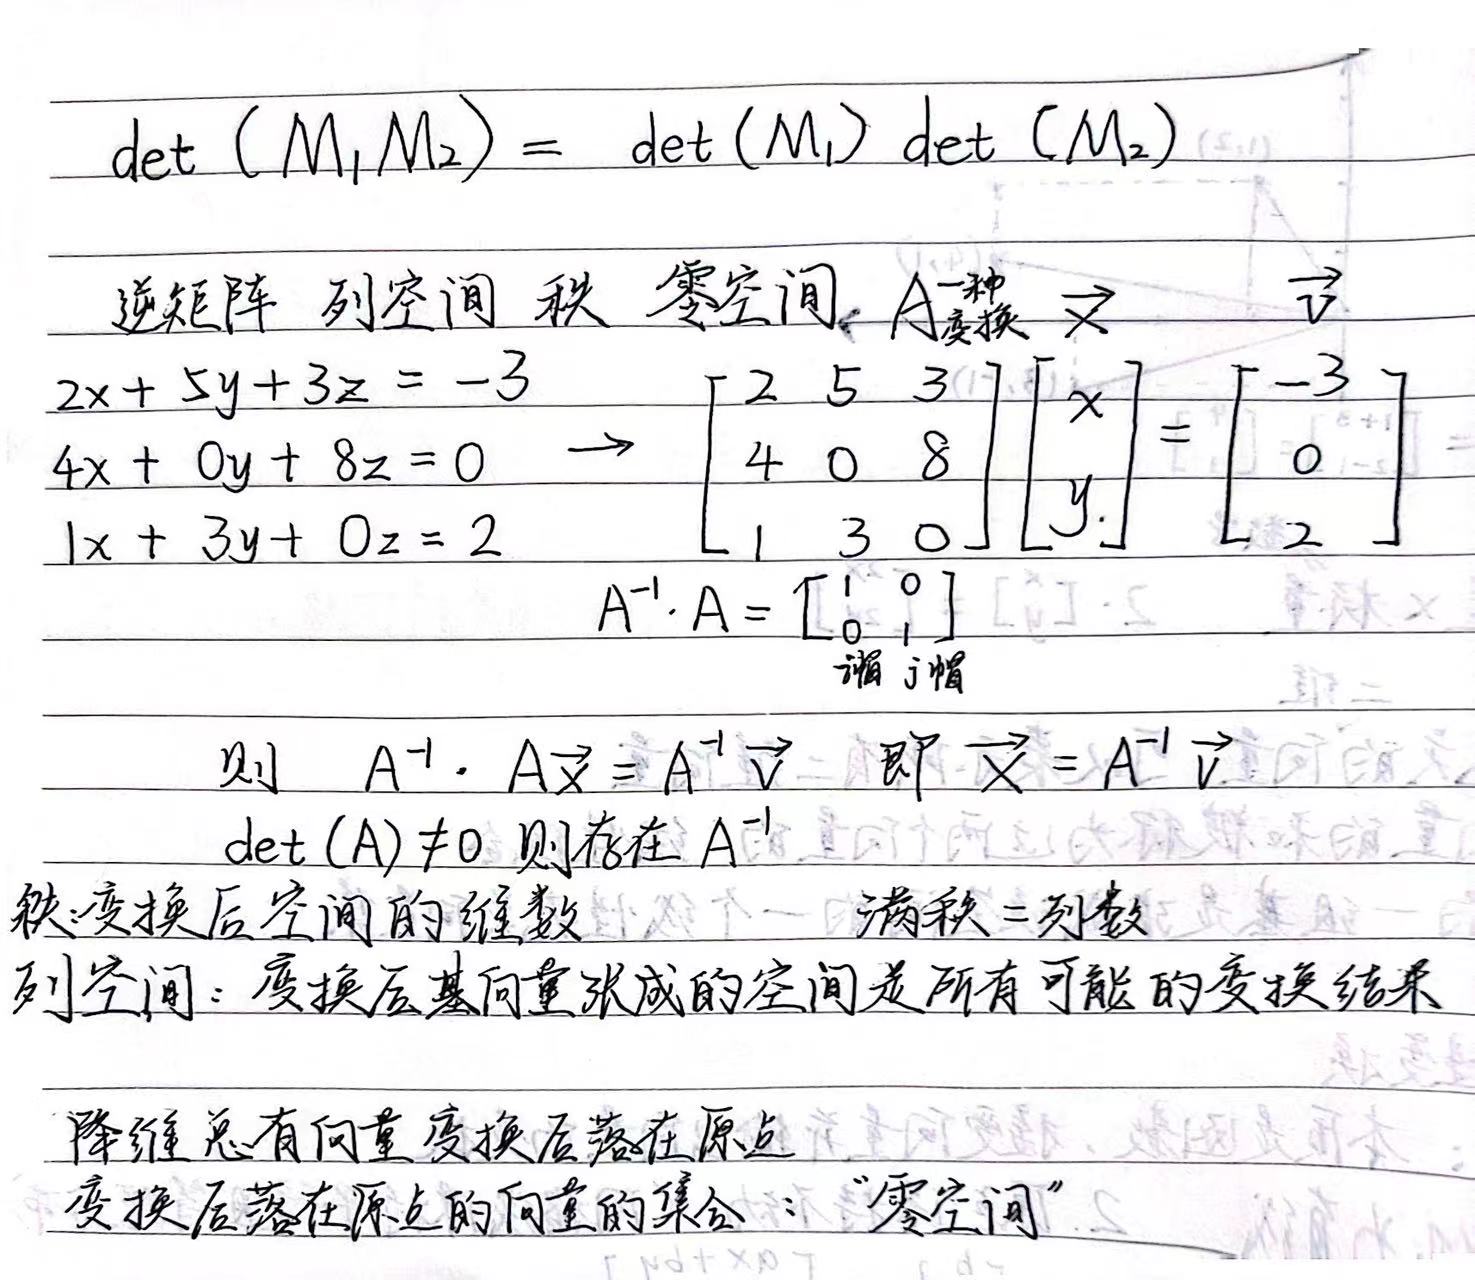 det (M₁M₂) = det (M₁) det (M₂)
逆矩阵 列空间 秩 零空间 A 一种变换 x⃗ v⃗
2x + 5y + 3z = -3
4x + 0y + 8z = 0
1x + 3y + 0z = 2
→ [2 5 3
4 0 8
1 3 0] [x
y] = [-3
0
2]
A⁻¹·A = [1 0
0 1]
i帽 j帽
则 A⁻¹·Ax⃗ = A⁻¹v⃗ 即 x⃗ = A⁻¹v⃗
det (A) ≠ 0 则存在 A⁻¹
秩:变换后空间的维数 满秩 = 列数
列空间:变换后基向量张成的空间是所有可能的变换结果
降维总有向量变换后落在原点
变换后落在原点的向量的集合:“零空间”